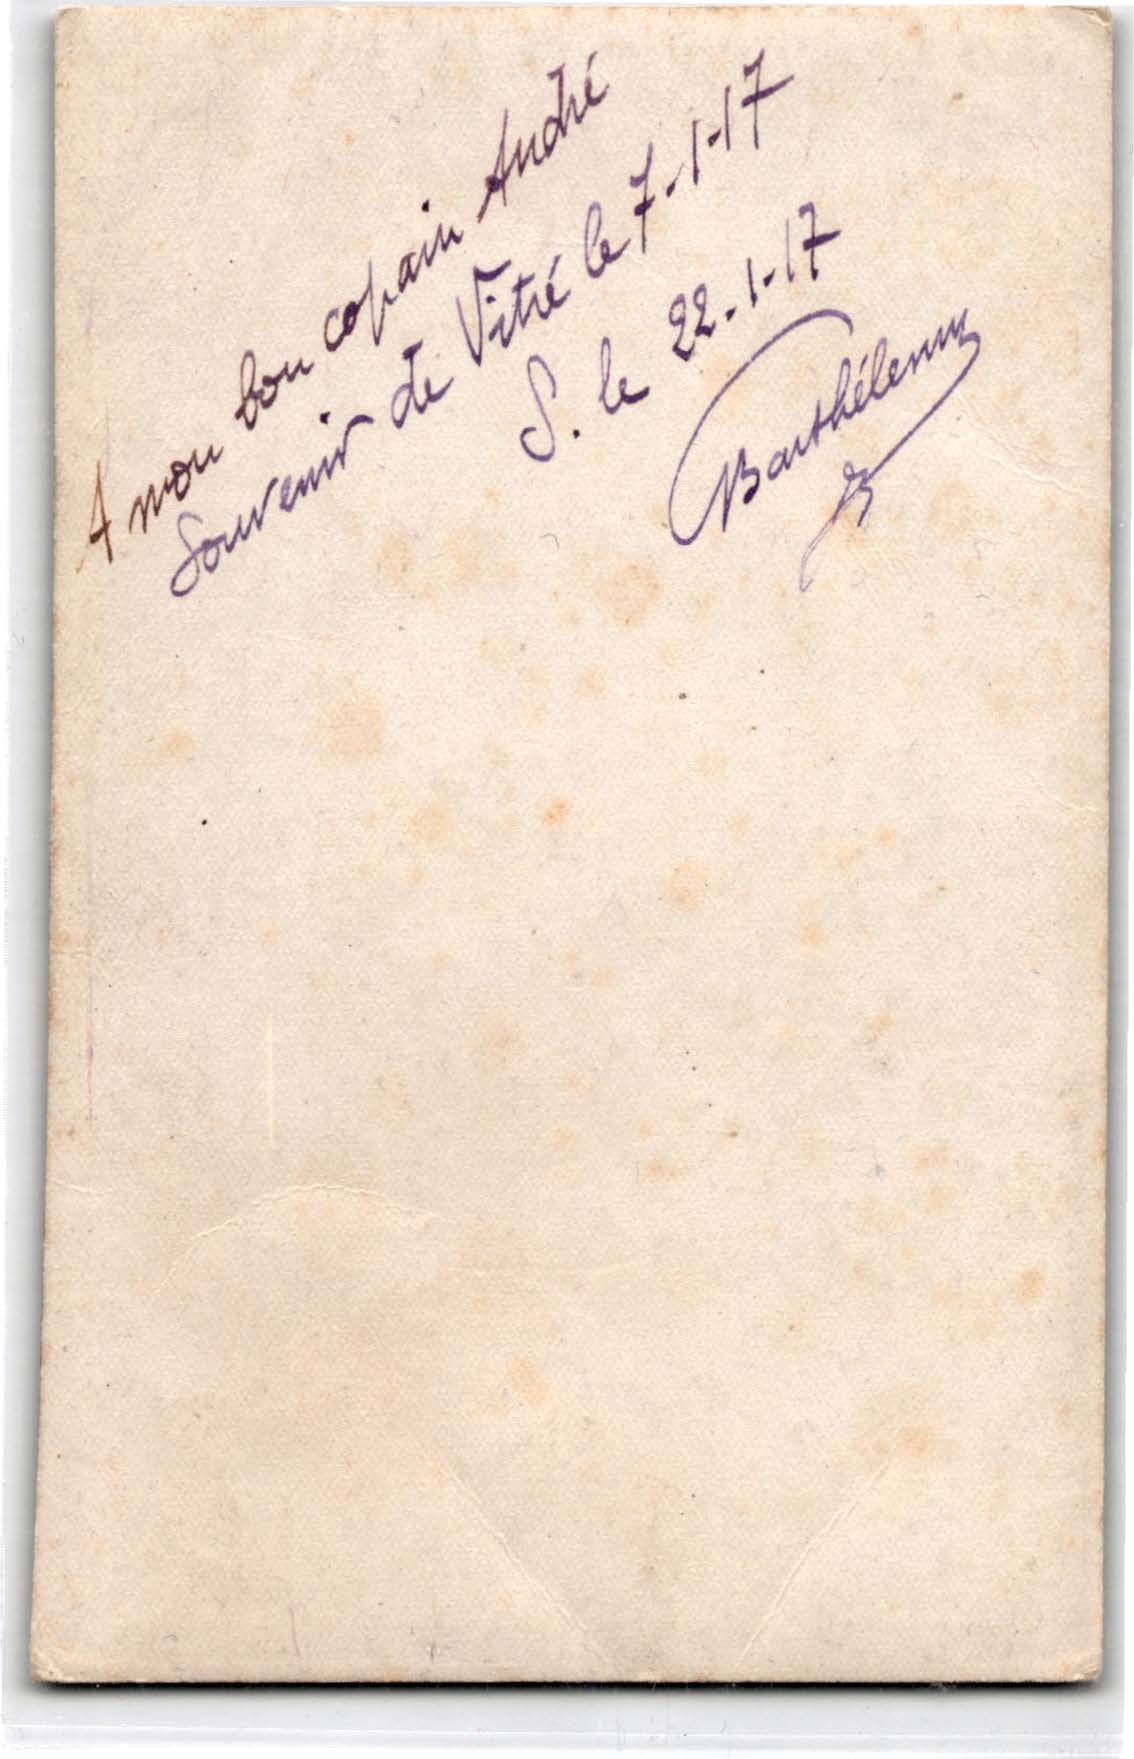 A mon bon copain André
Souvenir de Vitré le 7-1-17
S. le 22-1-17
Barthélemy